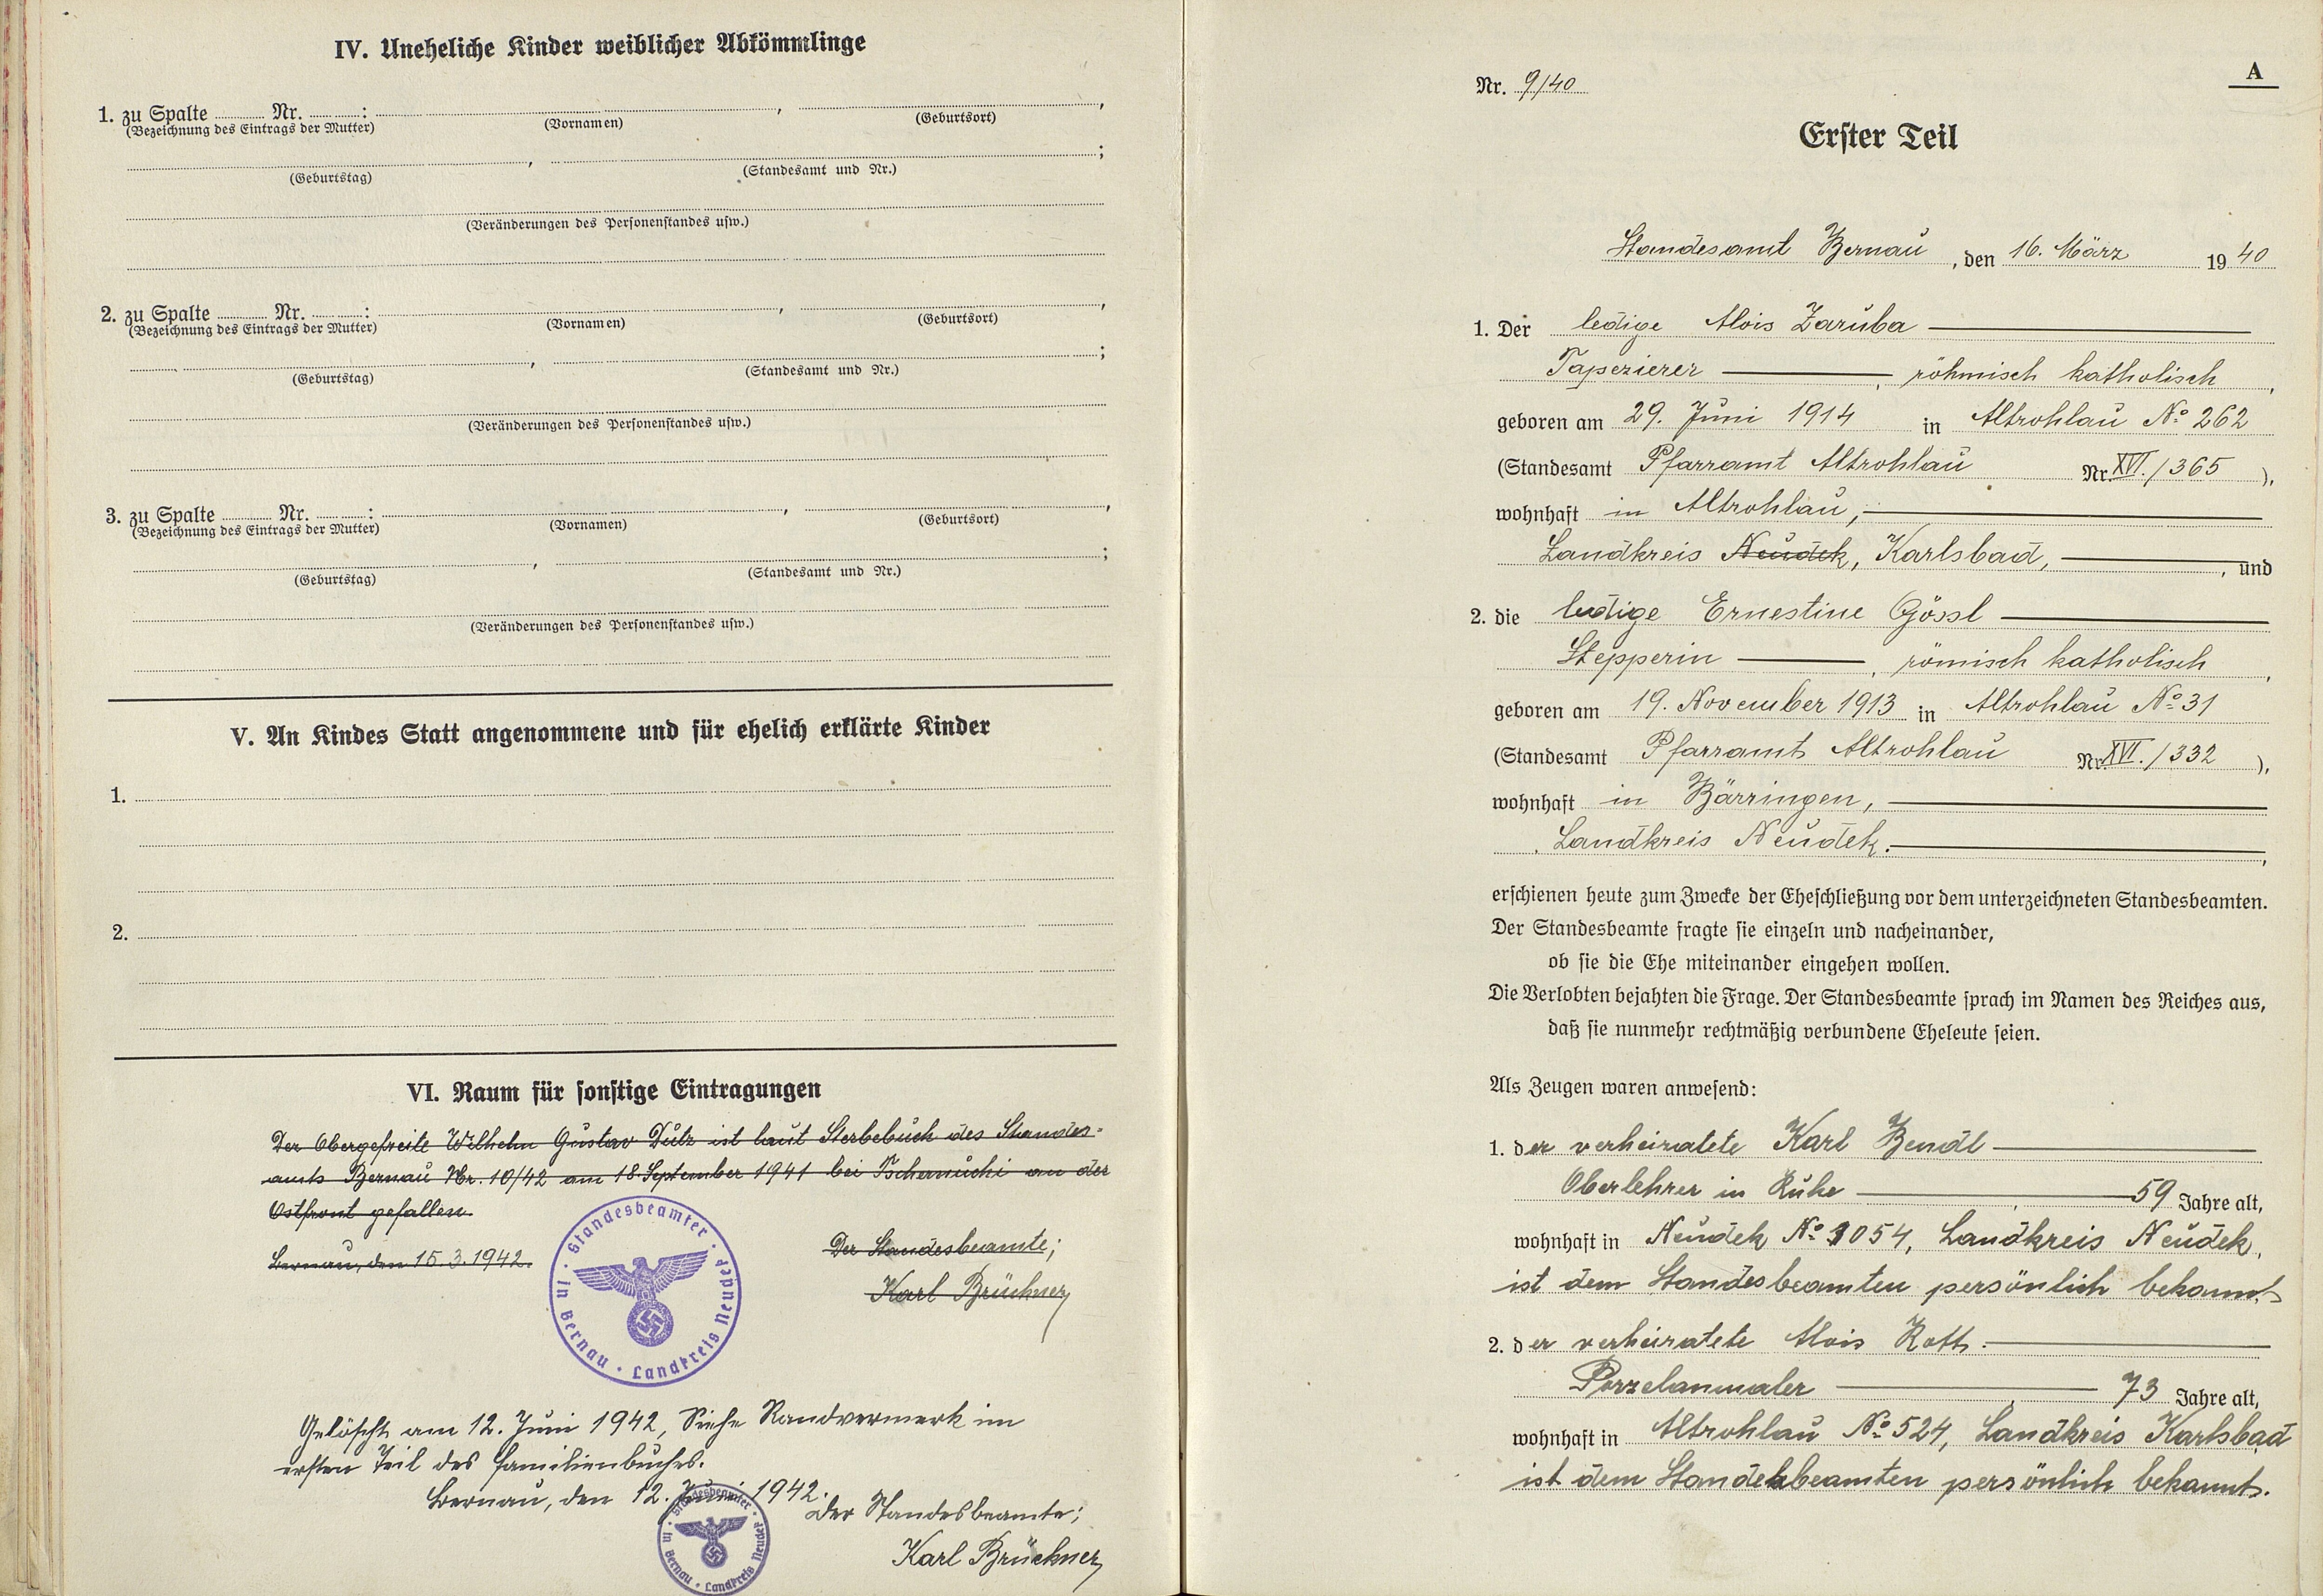 IV. Uneheliche Kinder weiblicher Abkömmlinge
1. zu Spalte Nr. : , ,
(Bezeichnung des Eintrags der Mutter) (Vornamen) (Geburtsort)
, ;
(Geburtstag) (Standesamt und Nr.)
(Veränderungen des Personenstandes usw.)
2. zu Spalte Nr. : , ,
(Bezeichnung des Eintrags der Mutter) (Vornamen) (Geburtsort)
, ;
(Geburtstag) (Standesamt und Nr.)
(Veränderungen des Personenstandes usw.)
3. zu Spalte Nr. : , ,
(Bezeichnung des Eintrags der Mutter) (Vornamen) (Geburtsort)
, ;
(Geburtstag) (Standesamt und Nr.)
(Veränderungen des Personenstandes usw.)
V. An Kindes Statt angenommene und für ehelich erklärte Kinder
1.
2.
VI. Raum für sonstige Eintragungen
Der Obergefreite Wilhelm Gustav Dütz ist laut Sterbebuch des Standes-
amts Bernau Nr. 10/42 am 18. September 1941 bei Tschernuchi an der
Ostfront gefallen.
Bernau, den 15.3.1942.
Der Standesbeamte;
Karl Brückner
Standesbeamter · in Bernau · Landkreis Neudek
Gelöscht am 12. Juni 1942, Siehe Randvermerk im
ersten Teil des Familienbuches.
Bernau, den 12. Juni 1942.
Der Standesbeamte;
Karl Brückner
Standesbeamter · in Bernau · Landkreis Neudek
A
Nr. 9/40
Erster Teil
Standesamt Bernau, den 16. März 1940
1. Der ledige Alois Zaruba
Tapezierer, röhmisch katholisch,
geboren am 29. Juni 1914 in Altrohlau No 262
(Standesamt Pfarramt Altrohlau Nr. XVI./365),
wohnhaft in Altrohlau,
Landkreis Neudek, Karlsbad, , und
2. die ledige Ernestine Gössl
Stepperin, römisch katholisch,
geboren am 19. November 1913 in Altrohlau No 31
(Standesamt Pfarramt Altrohlau Nr. XVI./332),
wohnhaft in Bärringen,
Landkreis Neudek. ,
erschienen heute zum Zwecke der Eheschließung vor dem unterzeichneten Standesbeamten.
Der Standesbeamte fragte sie einzeln und nacheinander,
ob sie die Ehe miteinander eingehen wollen.
Die Verlobten bejahten die Frage. Der Standesbeamte sprach im Namen des Reiches aus,
daß sie nunmehr rechtmäßig verbundene Eheleute seien.
Als Zeugen waren anwesend:
1. der verheiratete Karl Bendl
Oberlehrer in Ruhe, 59 Jahre alt,
wohnhaft in Neudek No 1054, Landkreis Neudek,
ist dem Standesbeamten persönlich bekannt.
2. der verheiratete Alois Rott.
Porzelanmaler, 73 Jahre alt,
wohnhaft in Altrohlau No 524, Landkreis Karlsbad
ist dem Standesbeamten persönlich bekannt.